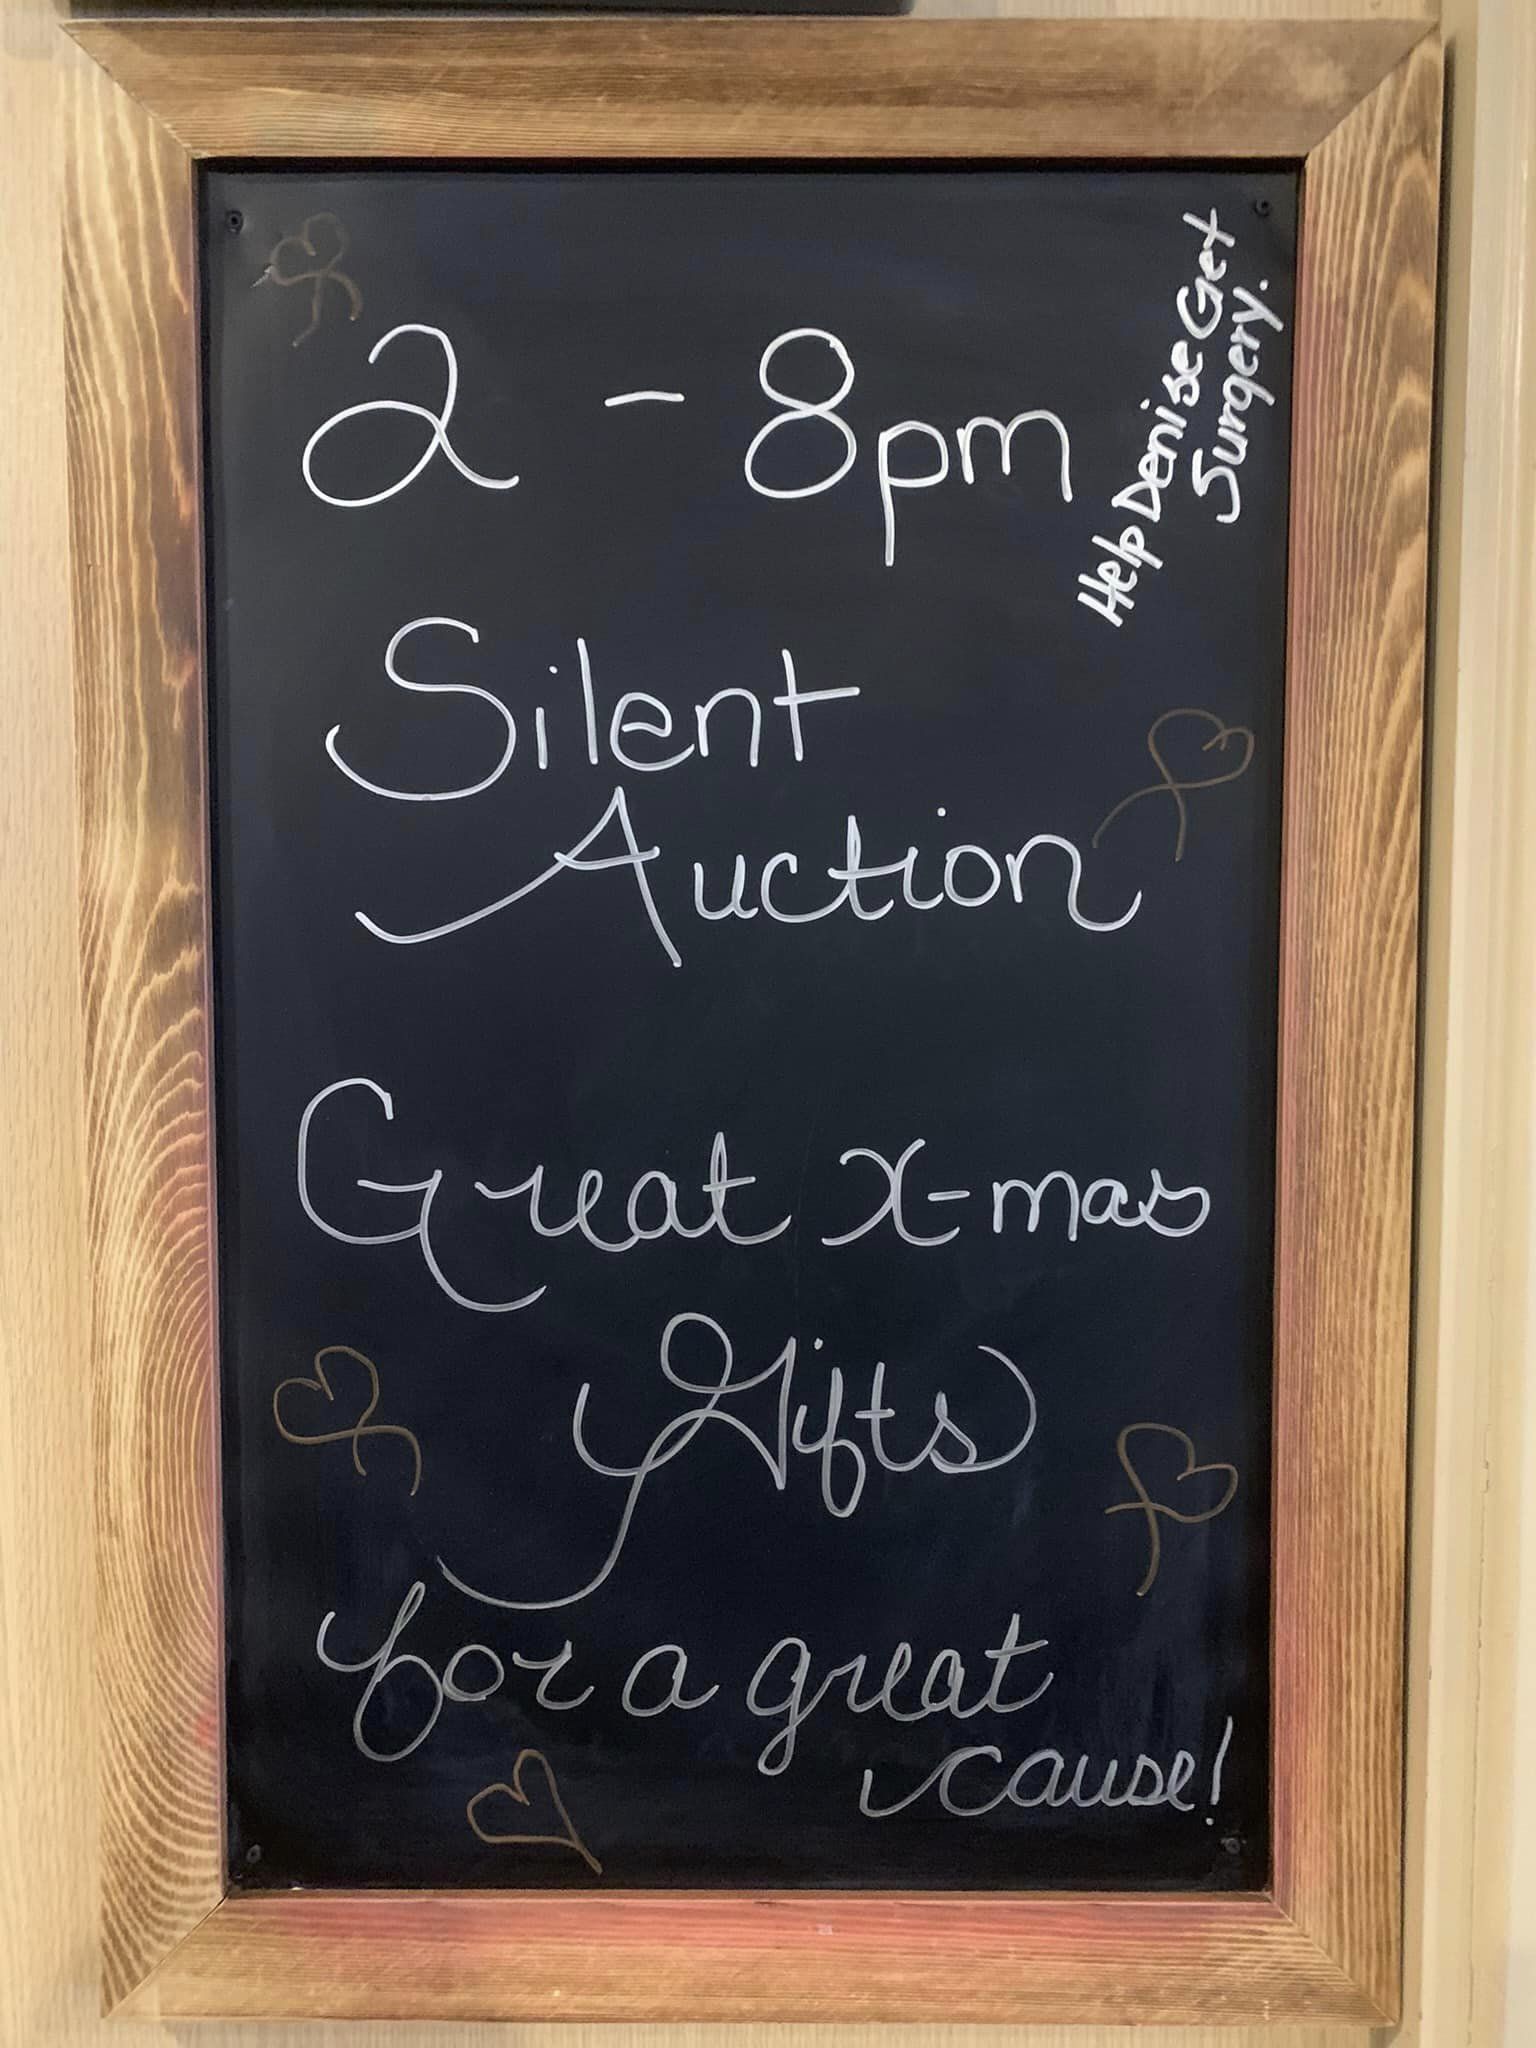 2 - 8pm
Help Denise Get
Surgery.
Silent
Auction
Great X-mas
Gifts
for a great
cause!